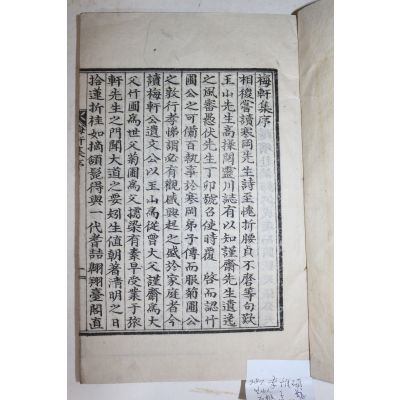 梅軒集序
相復嘗讀寒岡先生詩至愧折腰貞不磨等句歎
玉山先生高操閱靈川誌有以知謹齋先生遺逸
之風審愚伏先生丁卯號召使時覆啓而認竹
圃公之可備百執事於寒岡弟子傳而服菊圃公
之敦行孝悌謂必有觀感興起之盛於家庭者今
讀梅軒公遺文公以玉山爲從曾大父謹齋爲大
父竹圃爲世父菊圃爲攛梁有素早受業于旅
軒先生之門聞大道之要矧生值朝著清明之日
拾蓮折桂如摘頷髭得與一代耆喆翺翔臺閣直
梅軒集序